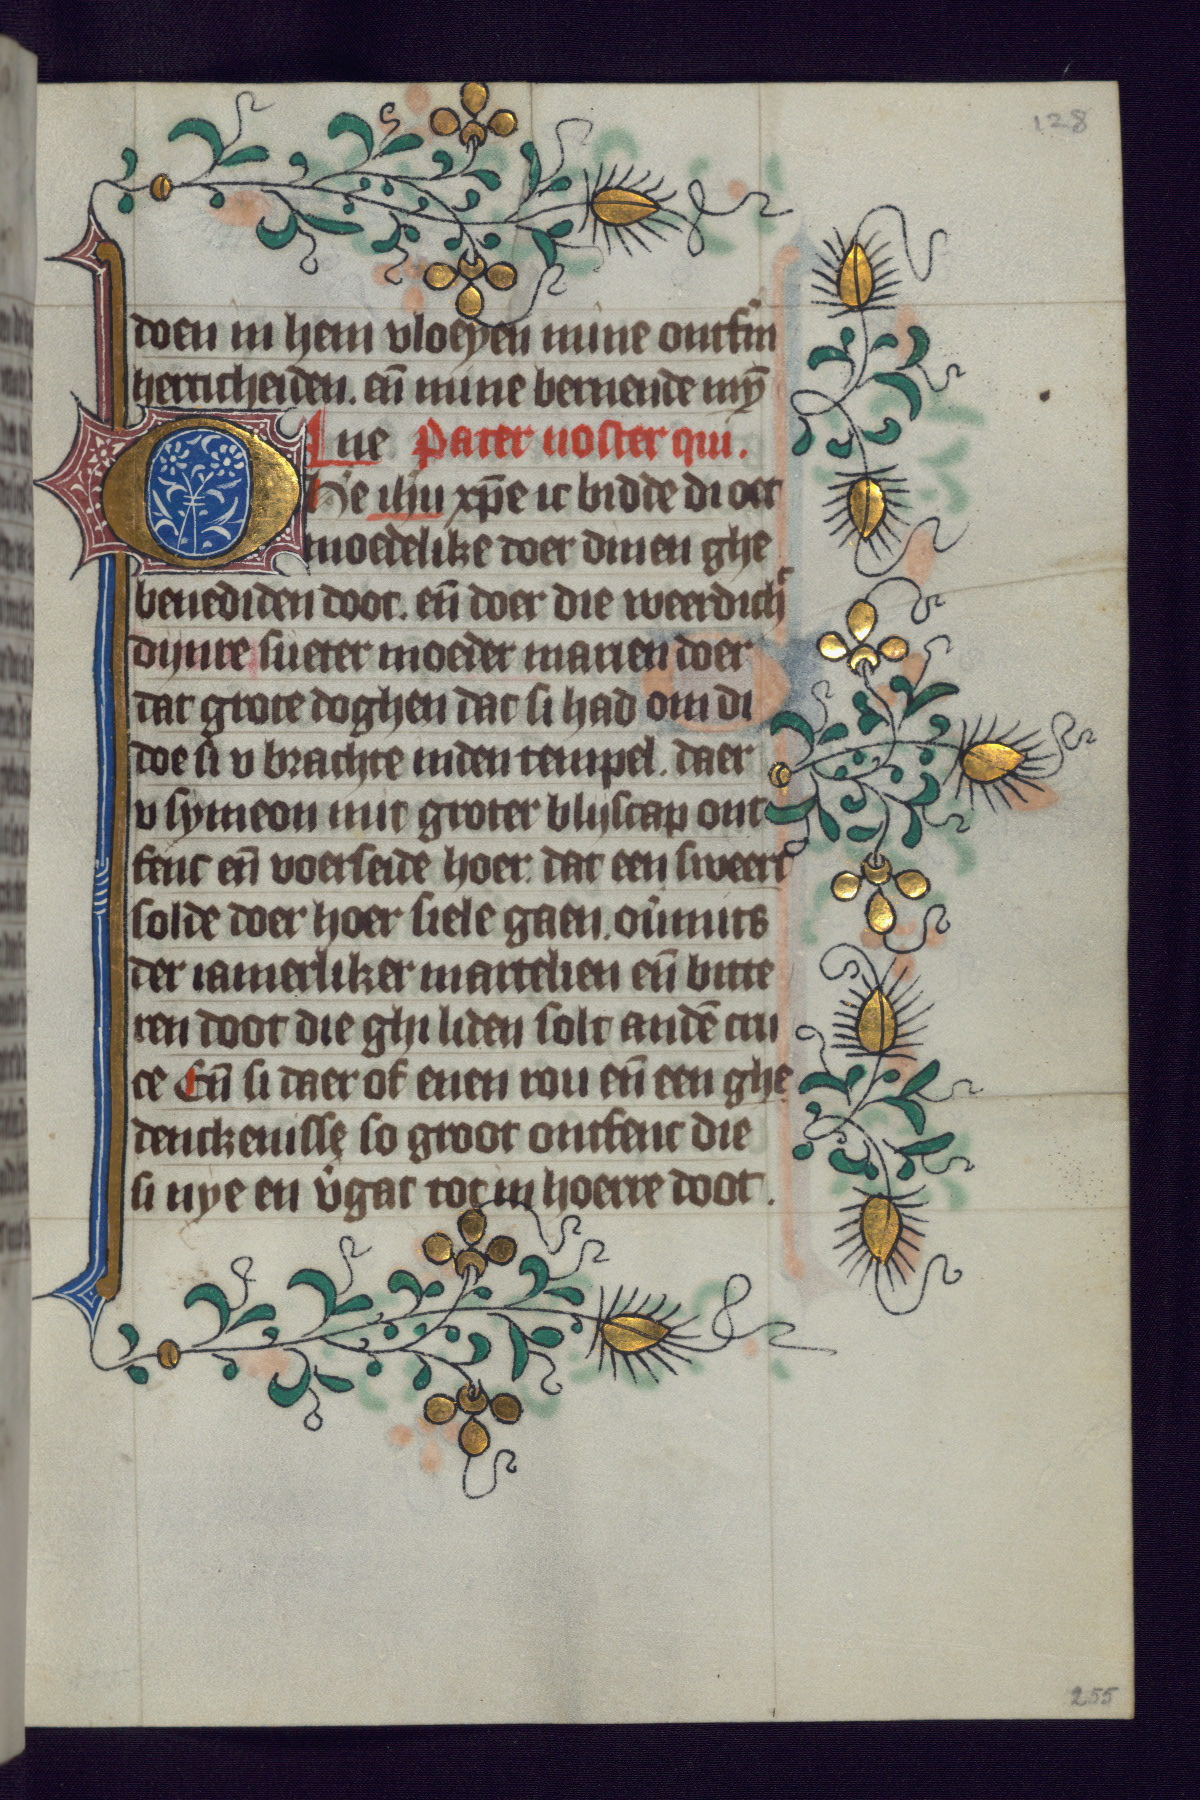 128
doen in hem vloeyen mine ontfm̄
herticheiden. eñ mine bernende mȳ
Aue Pater noster qui.
O He ihū xp̄e ic bidde di oet
moedelike doer dinen ghe
benediden doot. eñ doer die weerdich
dijnre sueter moeder marien doer
dat grote doghen dat si had om di
doe si v brachte inden tempel. daer
v symeon mit groter blijscap ont
fenc eñ voerseide hoer. dat een sweert
solde doer hoer siele gaen. ouˀmits
der iamerliker martelien eñ bitte
ren doot die ghi liden solt andē cru
ce Eñ si daer of enen rou eñ een ghe
denckenisse so groot ontfenc die
si nye en vˀgat tot in hoerre doot.
255